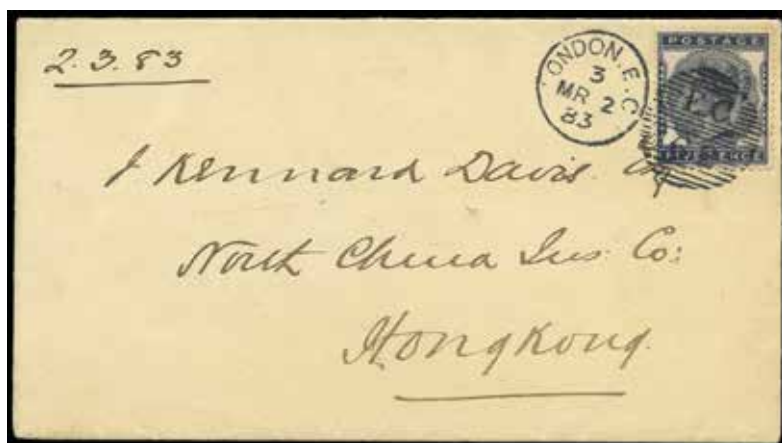 2.3.83
LONDON.E.C
3
MR 2
83
POSTAGE
EC
FIVE PENCE
J Kennard Davis Esq
North China Ins. Co:
Hong Kong.